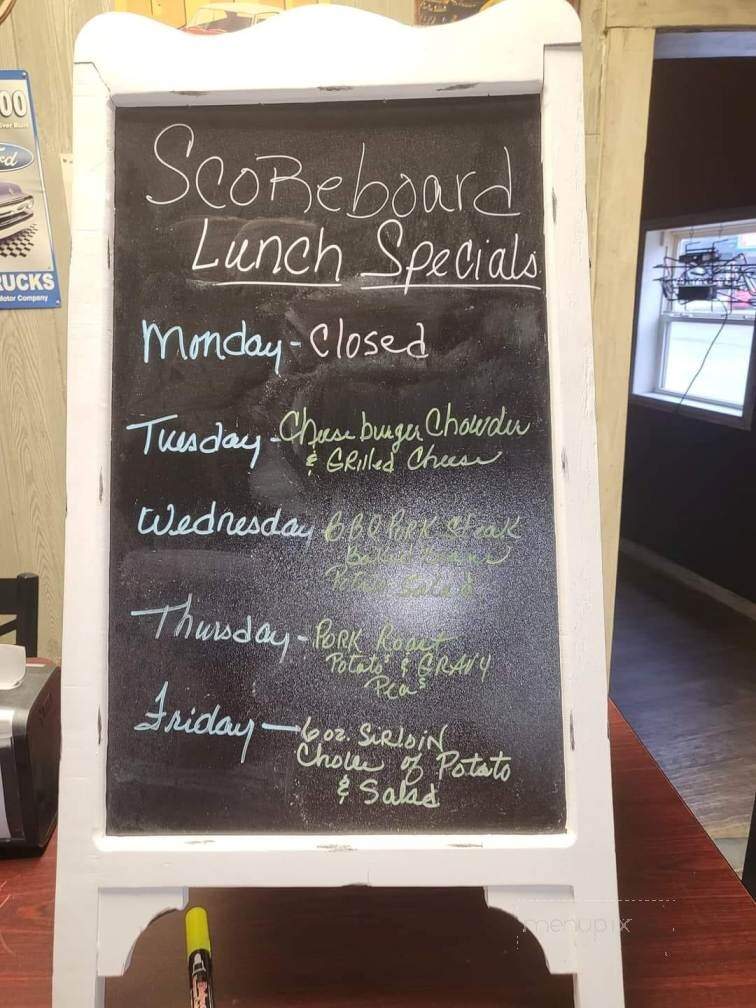 00
rd
RUCKS
Motor Company
Scoreboard
Lunch Specials
Monday - Closed
Tuesday - Cheeseburger Chowder
& Grilled Cheese
Wednesday BBQ Pork Steak
Baked Beans
Potato Salad
Thursday - Pork Roast
Potato's & GRAVY
Pea's
Friday - 6 oz. Sirloin
Choice of Potato
& Salad
menupix